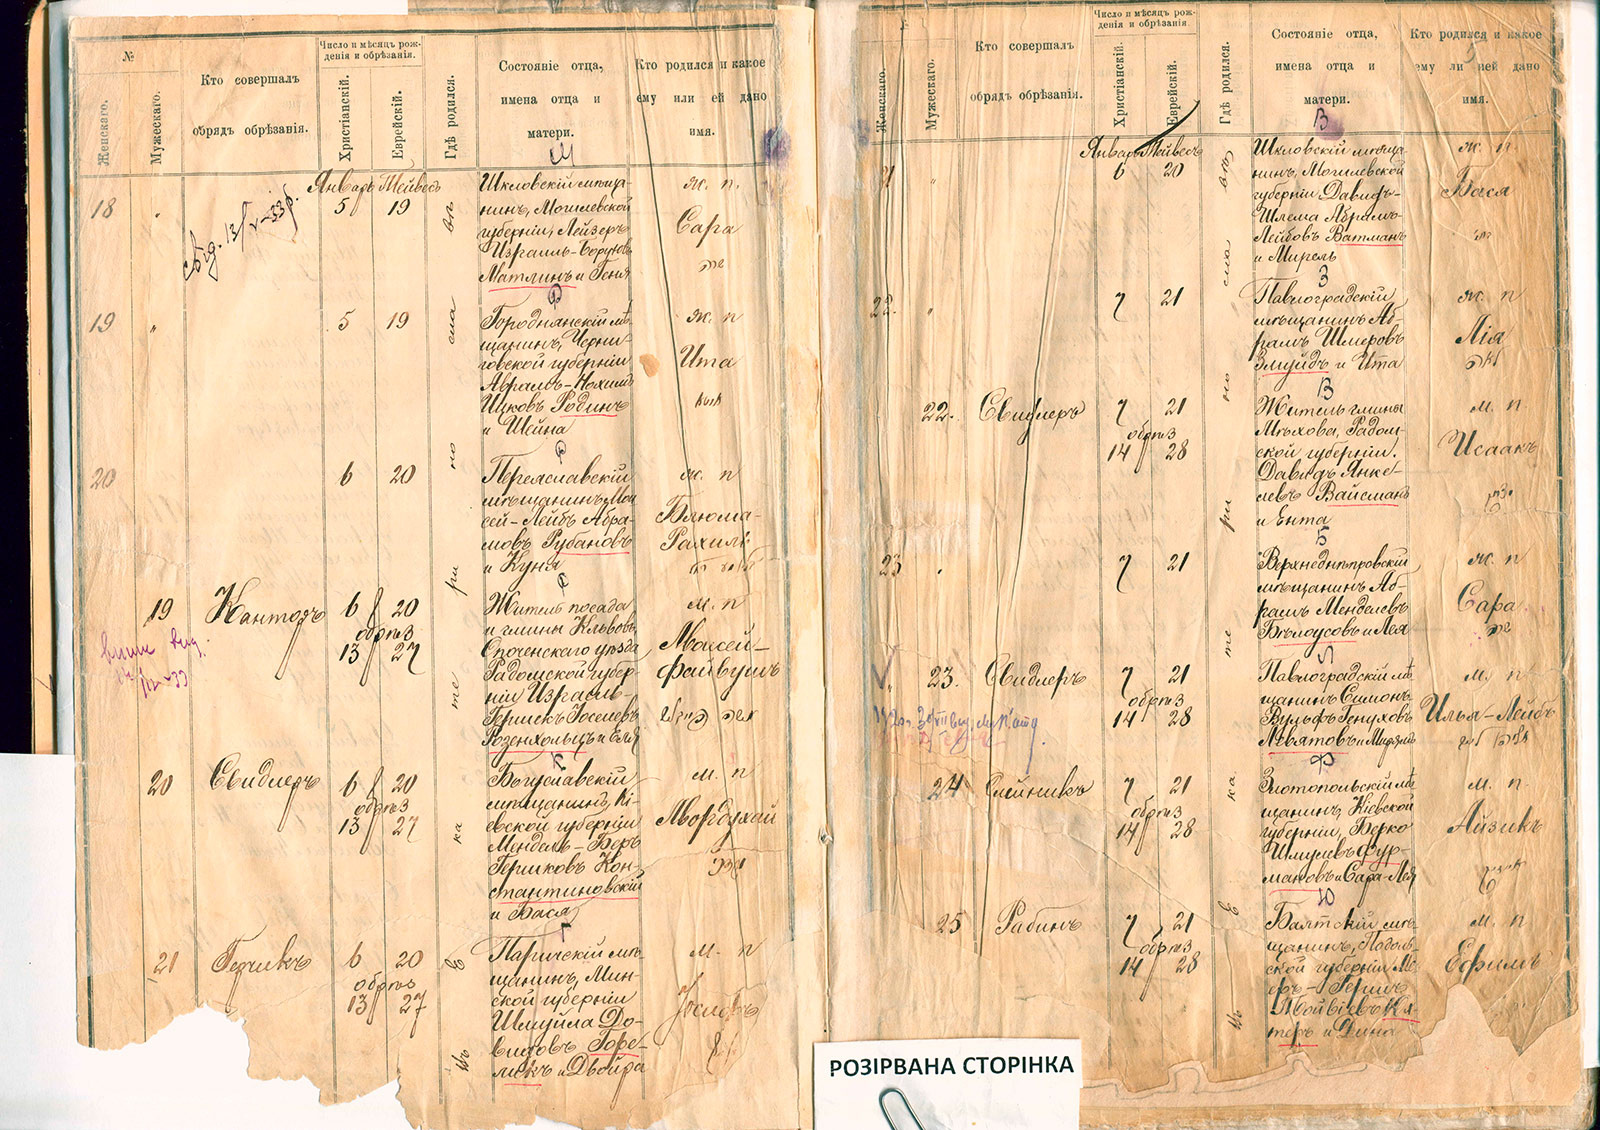 №
Женскаго.
Мужескаго.
Кто совершалъ
обрядъ обрѣзанія.
Число и мѣсяцъ рож-
денія и обрѣзанія.
Христіанскій.
Еврейскій.
Гдѣ родился.
Состояніе отца,
имена отца и
матери.
Кто родился и какое
ему или ей дано
имя.
Январь Тейвесъ
18
5 19
Шкловскій мѣща-
нинъ, Могилевской
губерніи, Лейзеръ
Матлинъ и Геня
ж. п.
Сара
19
5 19
Городнянскій мѣ-
щанинъ, Черни-
говской губерніи
Ицковъ Родинъ
и Шейна
ж. п
Ита
20
6 20
Переяславскій
мѣщанинъ, Мои
сей-Лейбъ Абра-
мовъ Рубановъ
и Куня
ж. п
Блюма-
Рахиль
19
Канторъ
6 20
обрѣз
13 27
Житель посада
и гмины Кльвовъ
Радомской губер-
ніи Израиль-
Гершекъ Іоселевъ
Розенхольцъ и Еля
м. п
Моисей-
Файвушъ
20
Свидлеръ
6 20
обрѣз
13 27
Богуславскій
мѣщанинъ, Кі-
евской губерніи
Мендель-Беръ
Гершковъ Кон-
стантиновскій
и Бася
м. п
Мордухай
21
6 20
обрѣз
13 27
Паричскій мѣ-
щанинъ, Мин-
ской губерніи
Шмуйла До-
видовъ Горе-
ликъ и Двойра
м. п
въ Екатеринославѣ
Женскаго.
Мужескаго.
Кто совершалъ
обрядъ обрѣзанія.
Число и мѣсяцъ рож-
денія и обрѣзанія.
Христіанскій.
Еврейскій.
Гдѣ родился.
Состояніе отца,
имена отца и
матери.
Кто родился и какое
ему или ей дано
имя.
В
Январь Тейвесъ
6 20
Шкловскій мѣща-
нинъ, Могилевской
губерніи, Давидъ-
Шлема Абрамъ-
Лейбовъ Ватманъ
и Мирель
ж. п
Бася
22.
7 21
З
Павлоградскій
мѣщанинъ Аб-
рамъ Шмеровъ
Змуйдъ и Ита
ж. п
Лія
22.
Свидлеръ
7 21
обрѣз
14 28
В
Житель гмины
Мѣхова, Радом-
ской губерніи.
Давидъ Янке-
левъ Вайсманъ
и Ента
м. п
Исаакъ
23
7 21
Б
Верхнеднѣпровскій
мѣщанинъ Аб-
рамъ Менделевъ
Бѣлоусовъ и Лея
ж. п
Сара
23.
Свидлеръ
7 21
обрѣз
14 28
Павлоградскій мѣ
щанинъ Симонъ-
Вульфъ Генуховъ
Левятовъ и Мирьямъ
м. п
Илья-Лейбъ
24
Олейникъ
7 21
обрѣз
14 28
Ф
Златопольскій мѣ
щанинъ, Кіевской
губерніи, Берко
Шмулевъ Фур-
мановъ и Сара-Лея
м. п
Айзикъ
25
Рабинъ
7 21
обрѣз
14 28
Ю
Балтскій мѣ-
щанинъ, Подоль-
ской губерніи Ме-
еръ-Гершъ
и Дина
м. п
Ефимъ
въ Екатеринославѣ
РОЗІРВАНА СТОРІНКА